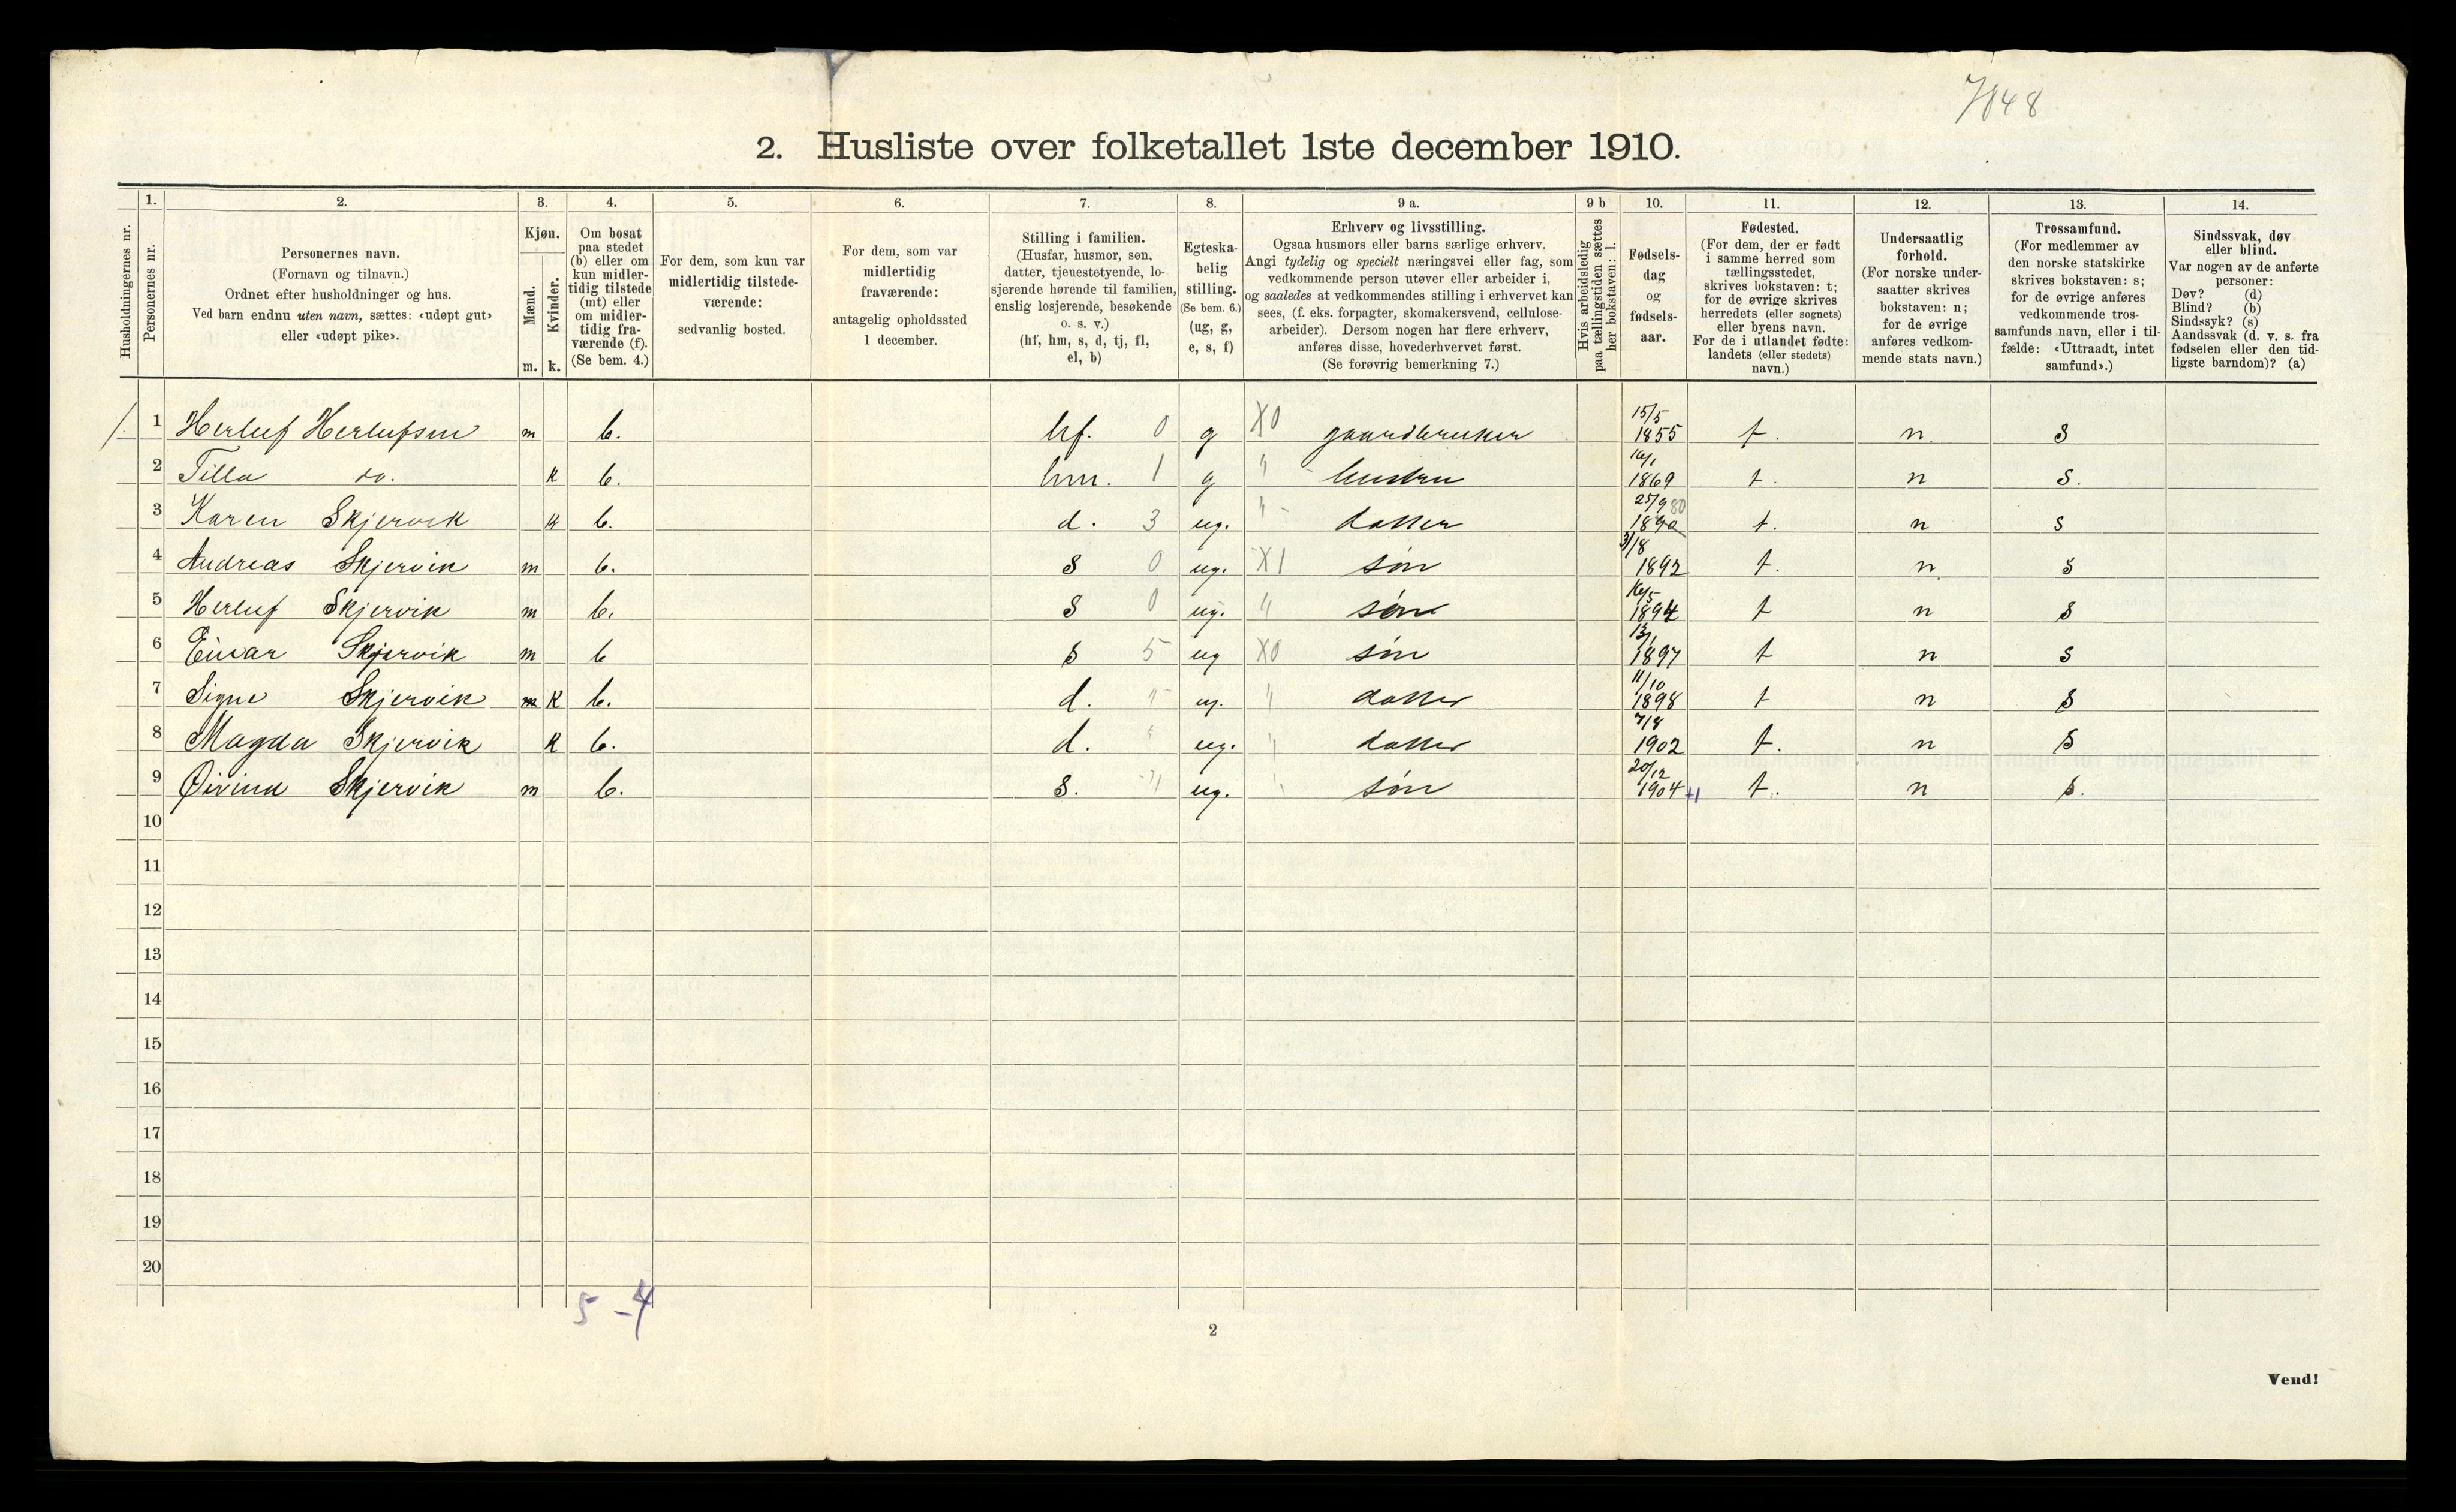 7848
2. Husliste over folketallet 1ste december 1910.
Husholdningernes nr.
1.
Personernes nr.
2.
Personernes navn.
(Fornavn og tilnavn.)
Ordnet efter husholdninger og hus.
Ved barn endnu uten navn, sættes: «udøpt gut»
eller «udøpt pike».
3.
Kjøn.
Mænd.
Kvinder.
m. k.
4.
Om bosat
paa stedet
(b) eller om
kun midler-
tidig tilstede
(mt) eller
om midler-
tidig fra-
værende (f).
(Se bem. 4.)
5.
For dem, som kun var
midlertidig tilstede-
værende:
sedvanlig bosted.
6.
For dem, som var
midlertidig
fraværende:
antagelig opholdssted
1 december.
7.
Stilling i familien.
(Husfar, husmor, søn,
datter, tjenestetyende, lo-
sjerende hørende til familien,
enslig losjerende, besøkende
o. s. v.)
(hf, hm, s, d, tj, fl,
el, b)
8.
Egteska-
belig
stilling.
(Se bem. 6.)
(ug, g,
e, s, f)
9 a.
Erhverv og livsstilling.
Ogsaa husmors eller barns særlige erhverv.
Angi tydelig og specielt næringsvei eller fag, som
vedkommende person utøver eller arbeider i,
og saaledes at vedkommendes stilling i erhvervet kan
sees, (f. eks. forpagter, skomakersvend, cellulose-
arbeider). Dersom nogen har flere erhverv,
anføres disse, hovederhvervet først.
(Se forøvrig bemerkning 7.)
9 b
Hvis arbeidsledig
paa tællingstiden sættes
her bokstaven: l.
10.
Fødsels-
dag
og
fødsels-
aar.
11.
Fødested.
(For dem, der er født
i samme herred som
tællingsstedet,
skrives bokstaven: t;
for de øvrige skrives
herredets (eller sognets)
eller byens navn.
For de i utlandet fødte:
landets (eller stedets)
navn.)
12.
Undersaatlig
forhold.
(For norske under-
saatter skrives
bokstaven: n;
for de øvrige
anføres vedkom-
mende stats navn.)
13.
Trossamfund.
(For medlemmer av
den norske statskirke
skrives bokstaven: s;
for de øvrige anføres
vedkommende tros-
samfunds navn, eller i til-
fælde: «Uttraadt, intet
samfund».)
14.
Sindssvak, døv
eller blind.
Var nogen av de anførte
personer:
Døv? (d)
Blind? (b)
Sindssyk? (s)
Aandssvak (d. v. s. fra
fødselen eller den tid-
ligste barndom)? (a)
1. 1 Herluf Herlufsen m b. hf. 0 g X0 gaardbruker 15/5 1855 t. n. s
2 Tilla do. k b. hm. 1 g " hustru 1869 t. n s.
3 Karen Skjervik k b. d. 3 ug. " datter 25/9 80 1890 t. n s
4 Andreas Skjervik m b. s 0 ug. X1 søn 31/8 1892 t. n s
5 Herluf Skjervik m b. s 0 ug. " søn 16/5 1894 t n s
6 Einar Skjervik m b s 5 ug X0 søn 13/1 1897 t n s
7 Signe Skjervik m k b. d. " ug. " datter 11/10 1898 t n s
8 Magda Skjervik k b. d. " ug. " datter 7/8 1902 t. n s
9 Øivind Skjervik m b. s. " ug. " søn 20/12 1904 +1 t. n s.
10
11
12
13
14
15
16
17
18
19
20
5 - 4
2
Vend!